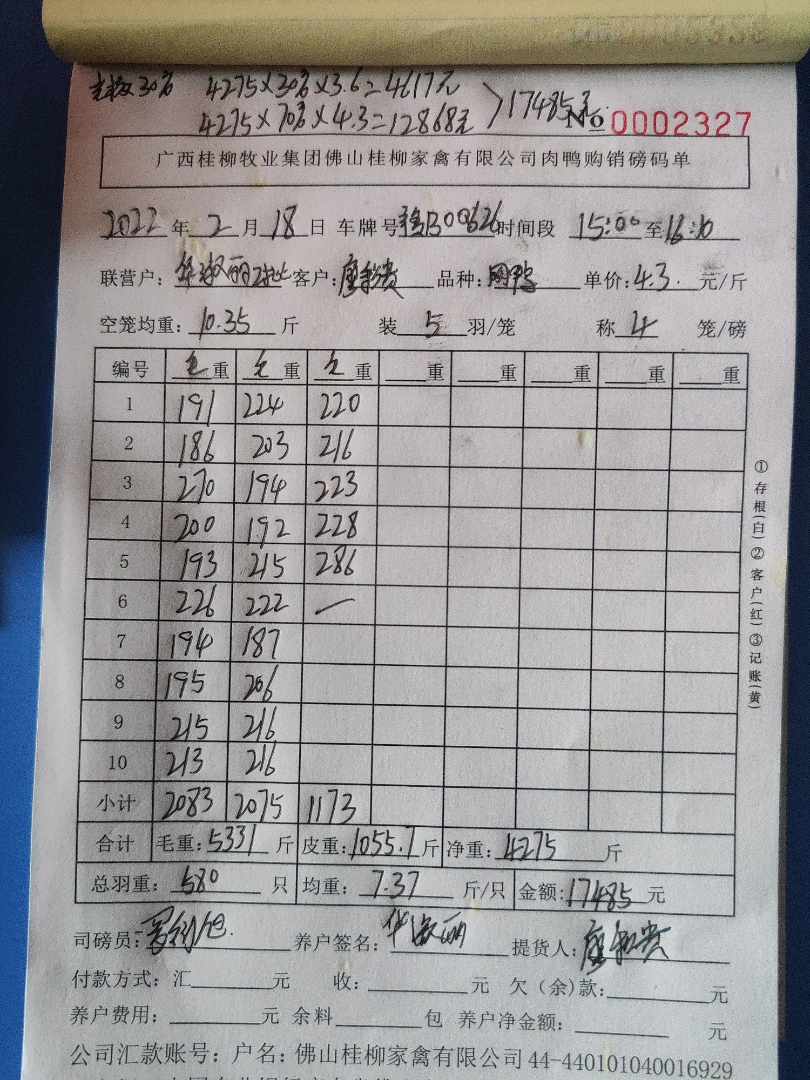 30% 4275×30%×3.6=4617元
4275×70%×4.3=12868元 17485元
№0002327
广西桂柳牧业集团佛山桂柳家禽有限公司肉鸭购销磅码单
2022年2月18日 车牌号 00626 时间段 15:00至16:10
联营户:华淑丽 客户: 贵 品种: 鸭 单价:4.3.元/斤
空笼均重:10.35斤 装5羽/笼 称4笼/磅
编号 毛重 毛重 毛重 重 重 重 重 重
1 191 224 220
2 186 203 216
3 270 194 223
4 200 192 228
5 193 215 286
6 226 222 —
7 194 187
8 195 206
9 215 216
10 213 216
小计 2083 2075 1173
合计 毛重:5331斤 皮重:1055.7斤 净重:4275斤
总羽重:580只 均重:7.37斤/只 金额:17485元
司磅员: 养户签名:华淑丽 提货人: 贵
付款方式:汇 元 收: 元 欠(余)款: 元
养户费用: 元 余料 包 养户净金额: 元
公司汇款账号:户名:佛山桂柳家禽有限公司44-440101040016929
①存根(白)②客户(红)③记账(黄)